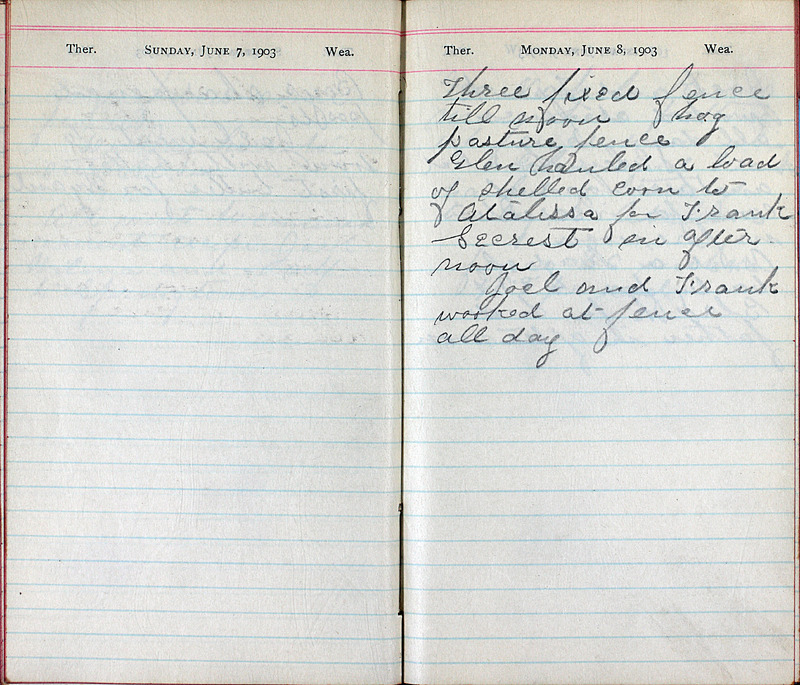 Ther. SUNDAY, JUNE 7, 1903 Wea.
Ther. MONDAY, JUNE 8, 1903 Wea.
Three fixed fence
till noon hog
pasture fence
Glen hauled a load
of shelled corn to
Atalissa for Frank
Secrest in after
noon
Joel and Frank
worked at fence
all day